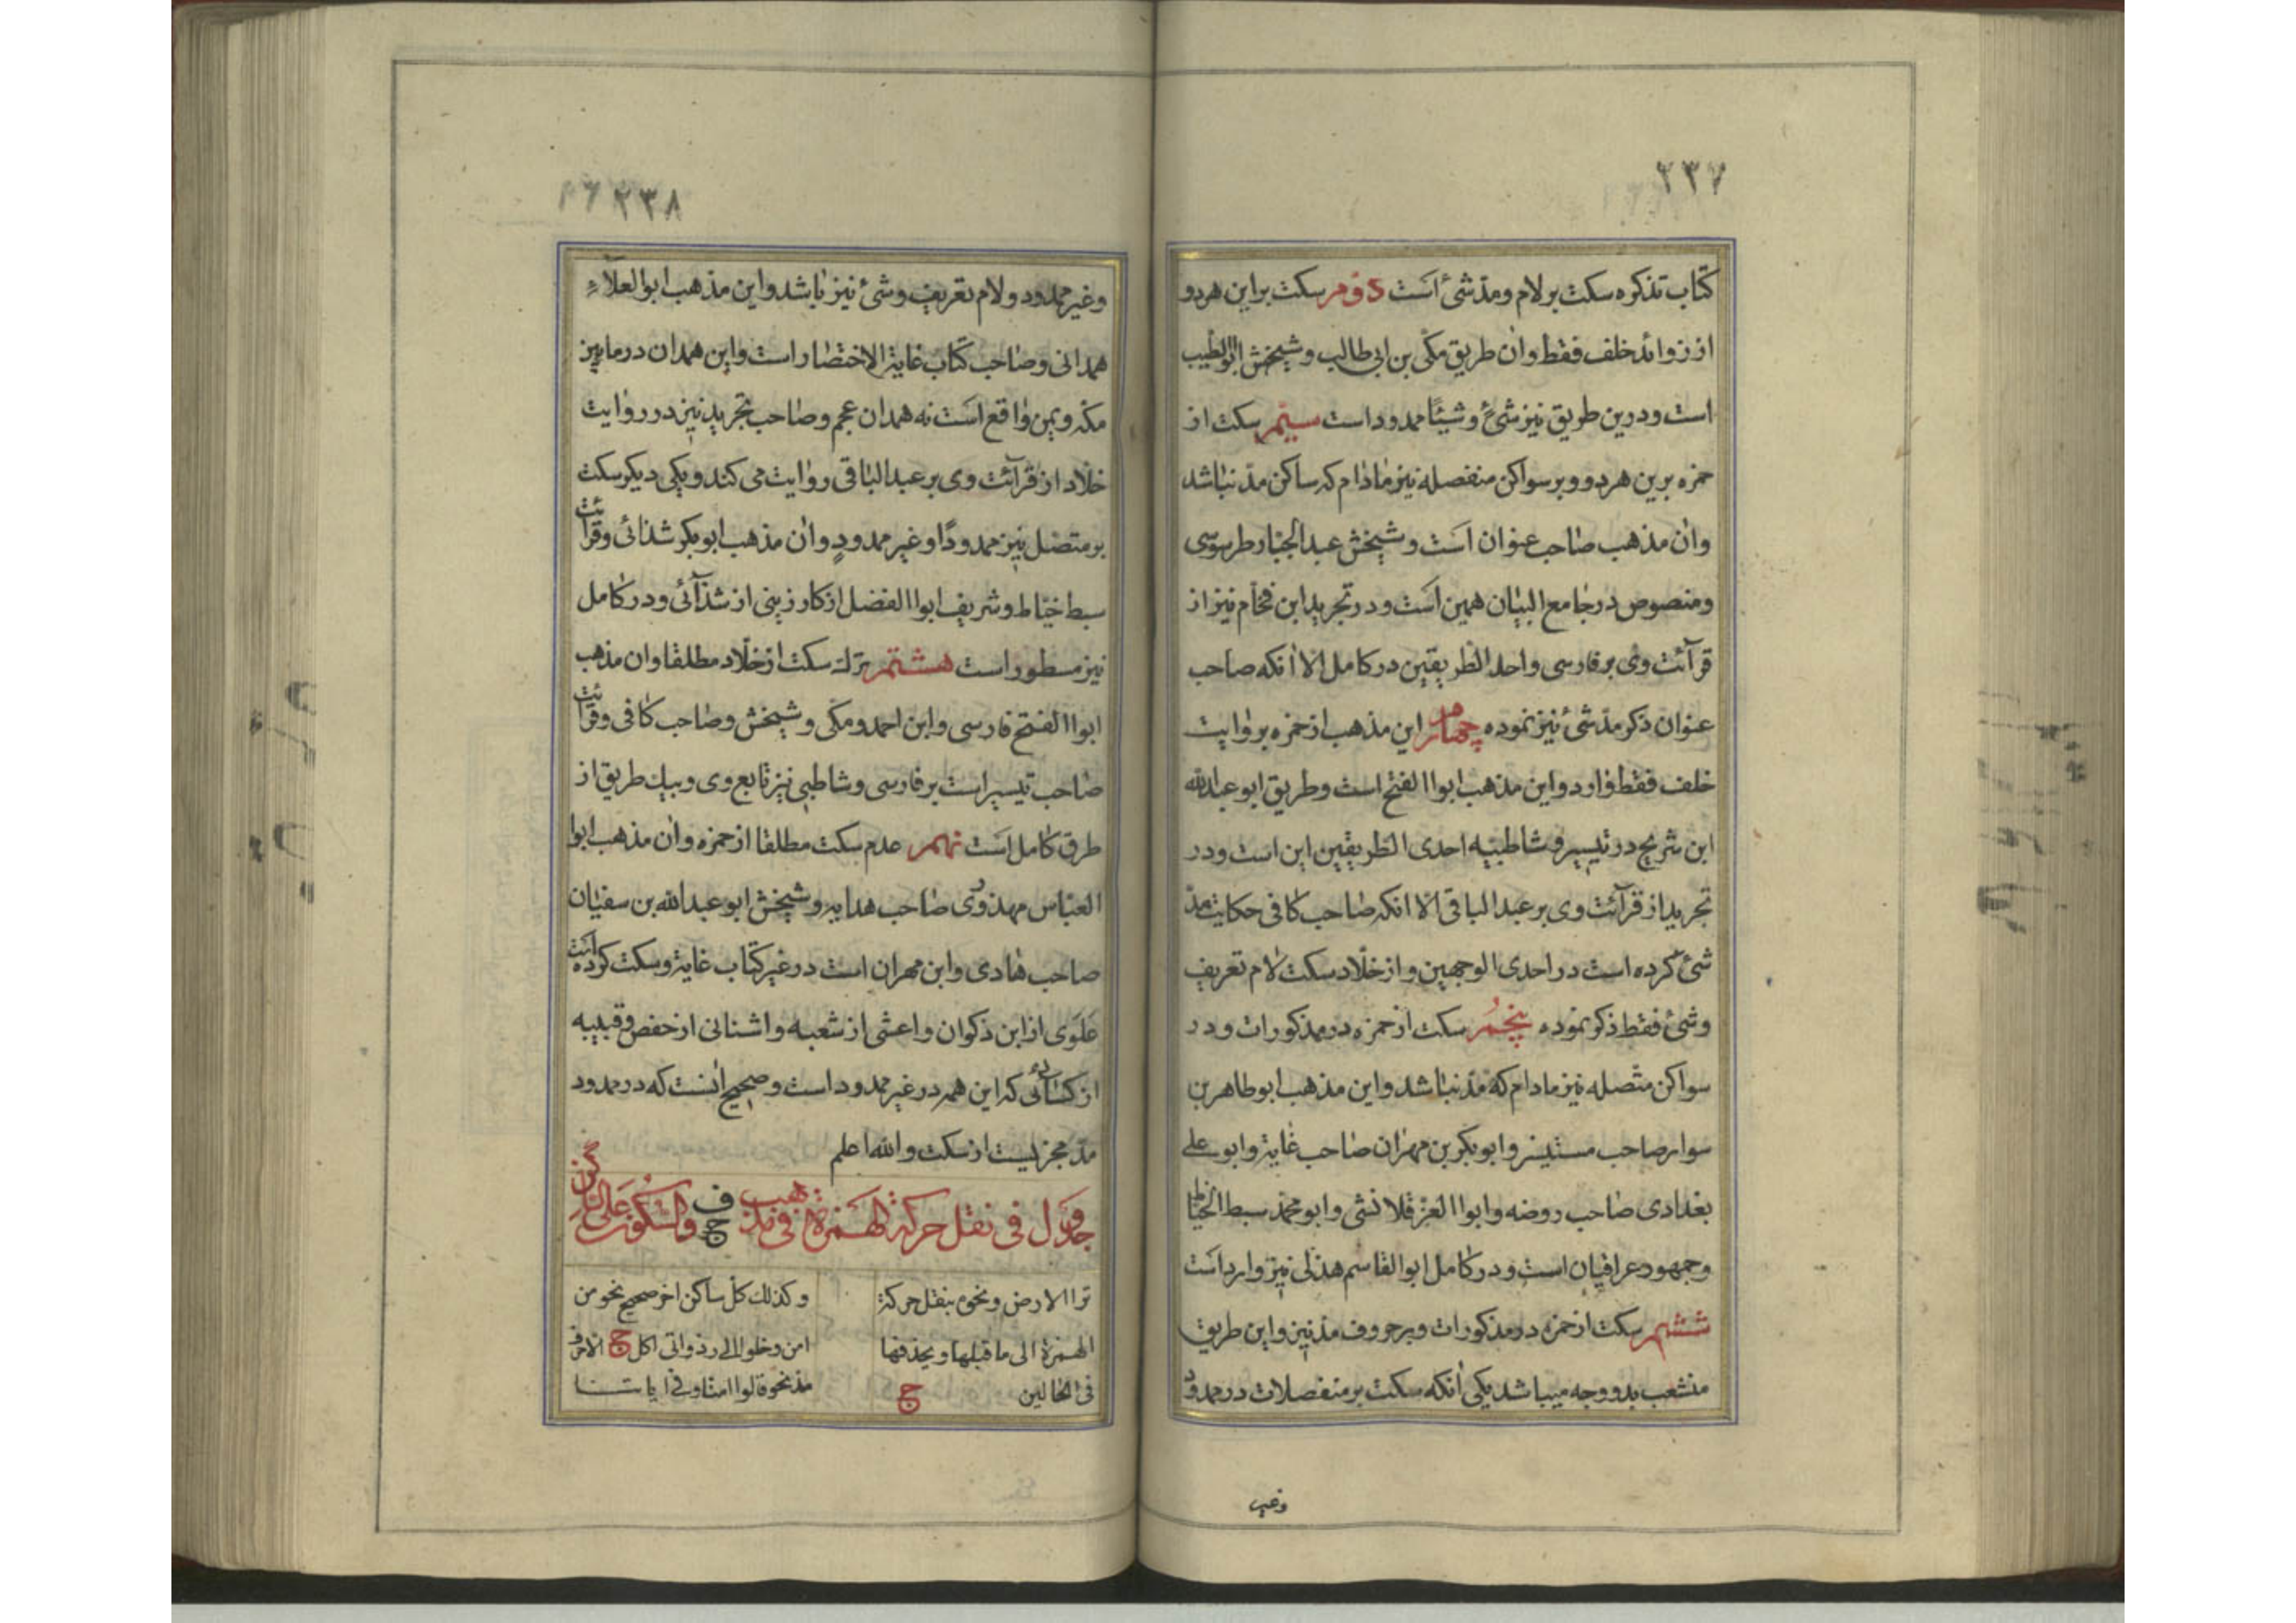 ٢٣٧
كتاب تذكره سكت بر لام و مدّ شئ است دوم سكت بر اين هردو
از زوائد خلف فقط وان طريق مكّى بن ابى طالب و شيخش ابو الطيب
است ودرين طريق نيز شئ و شيئًا ممدود است سيّم سكت از
حمزه برين هردو و بر سواكن منفصله نيز مادام كه ساكن مدّ نباشد
وان مذهب صاحب عنوان است و شيخش عبد الجبّار طرسوسى
ومنصوص در جامع البيان همين است و در تجريد ابن فحّام نيز از
قرآئت وى بر فارسى واحد الطريقين در كامل الا انكه صاحب
عنوان ذكر مدّ شئ نيز نموده چهارم اين مذهب از حمزه بروايت
خلف فقط وارد واين مذهب ابوا الفتح است وطريق ابو عبدالله
ابن شريح در تيسير و شاطبيه احدى الطريقين اين است ودر
تجريد از قرآئت وى بر عبد الباقى الّا انكه صاحب كافى حكايت مدّ
شئ كرده است در احدى الوجهين و از خلّاد سكت لام تعريف
و شئ فقط ذكر نموده پنجم سكت از حمزه در مذكورات و در
سواكن متّصله نيز مادام كه مدّ نباشد واين مذهب ابو طاهر بن
سوار صاحب مستنير و ابو بكر بن مهران صاحب غاية وابو على
بغدادى صاحب روضه وابوا العز قلانشى وابو محمّد سبط الخيّاط
وجمهور عراقيان است ودر كامل ابو القاسم هذلى نيز وارد است
ششم سكت از حمزه در مذكورات وبر حروف مدّ نيز واين طريق
منشعب بدو وجه ميباشد يكى انكه سكت بر منفصلات در ممدود
وغير
٢٣٨
وغير ممدود ولام تعريف و شئ نيز باشد واين مذهب ابوا العلاء
همدانى وصاحب كتاب غاية الاختصار است واين همدان در مابين
مكّه ويمن واقع است نه همدان عجم وصاحب تجريد نيز در روايت
خلّاد از قرآئت وى بر عبد الباقى روايت مى كند ويكى ديكر سكت
بر متصل نيز ممدودًا وغير ممدودٍ وان مذهب ابو بكر شذائى وقرائت
سبط خيّاط و شريف ابوا الفضل از كارزينى از شذآئى ودر كامل
نيز مسطور است هشتم ترك سكت از خلّاد مطلقا وان مذهب
ابوا الفتح فارسى وابن احمد ومكّى و شيخش وصاحب كافى وقرائت
صاحب تيسير است بر فارسى وشاطبى نيز تابع وى وبيك طريق از
طرق كامل است نهم عدم سكت مطلقا از حمزه وان مذهب ابوا
العبّاس مهدوى صاحب هدايه و شيخش ابو عبد الله بن سفيان
صاحب هادى وابن مهران است در غير كتاب غاية وسكت كرده است
علوى از ابن ذكوان واعشى از شعبه واشنانى از حفص وقتيبه
از كسائى كه اين همه در غير ممدود است وصحيح انست كه در ممدود
مدّ مجزيست از سكت والله اعلم
جدول فى نقل حركة الهمزة فى مذهب ف ج والسكون على الساكن
ترا الارض ونحوه بنقل حركة
الهمزة الى ما قبلها ويحذفها
فى الحالين ج
وكذلك كلّ ساكن اخر صحيح نحو من
امن وخلوا الى ذواتى اكل ج الّا حرف
مدّ نحو قالوا امنّا وفى اياتنا